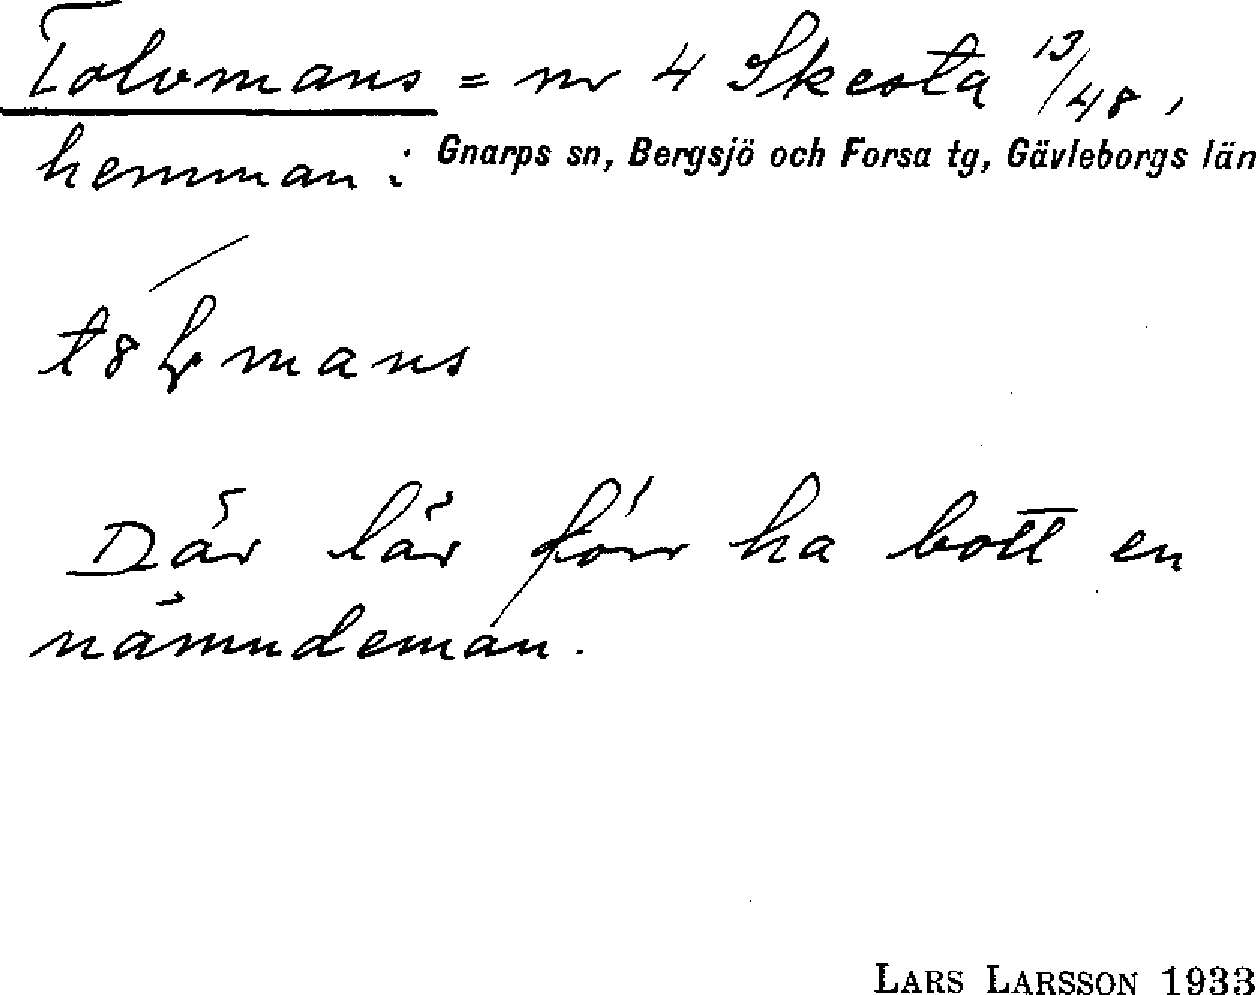 Tolvmans = nr 4 Skesta 13/48,
hemman: Gnarps sn, Bergsjö och Forsa tg, Gävleborgs län
Där lär förr ha bott en
nämndeman.
LARS LARSSON 1933